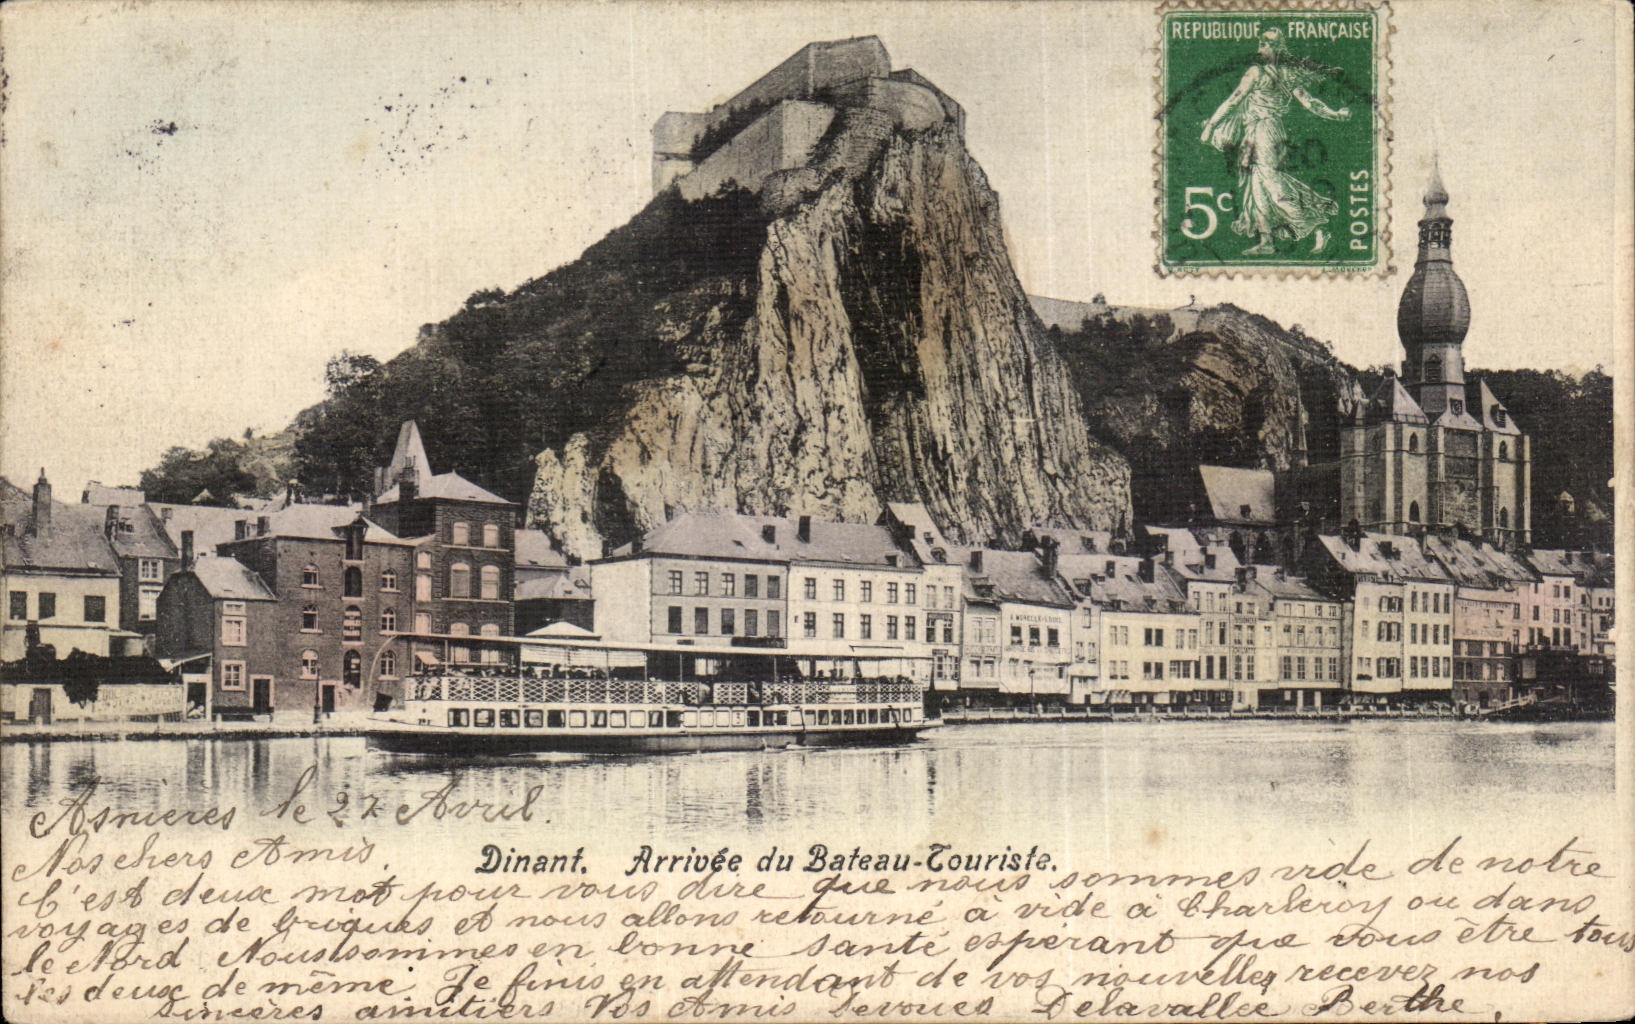 REPUBLIQUE FRANÇAISE
5c
POSTES
A. MORELLE-LOUIS
Asnières le 27 Avril.
Nos chers Amis.
Dinant. Arrivée du Bateau-Touriste.
C'est deux mot pour vous dire que nous sommes vide de notre
voyages de briques et nous allons retourné à vide à Charleroy ou dans
le Nord Nous sommes en bonne santé espérant que vous être tous
les deux de même Je finis en attendant de vos nouvelles recevez nos
sincères amitiers Vos Amis Devoues Delavallée Berthe.